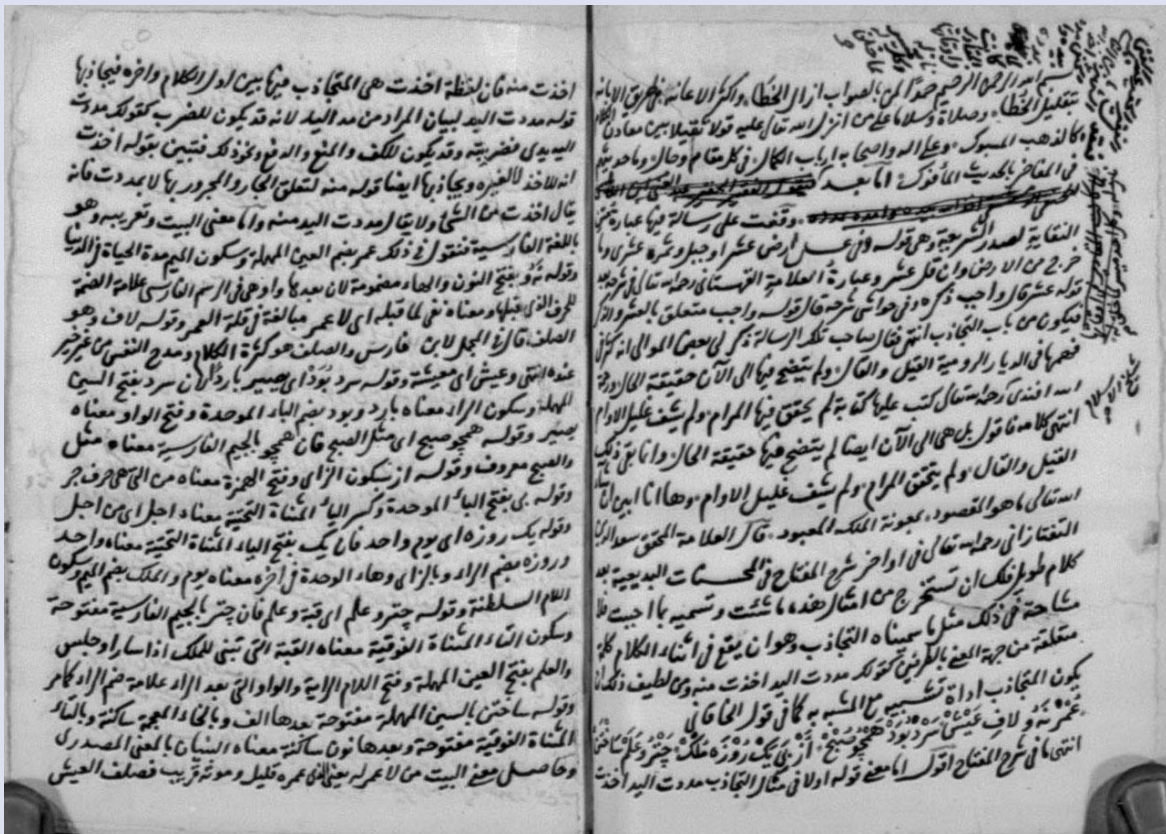 بسم الله الرحمن الرحيم حمدًا لمن بالصواب ازال الخطاء واكثر الاعانه في طرق الابانه
بتقليل الخطاء وصلاة وسلاما على من انزل الله تعالى عليه قولا ثقيلا بين معادن الكلام
كالذهب المسبوك وعلى اله واصحابه ارباب الكمال في كل مقام وحال وما
في المفاخر بالحديث المأفوك اما بعد
وقفت على رسالة فيها عبارة متن
النقاية لصدر الشريعة وهي قوله وفي عسل ارض عشر او جبل وثمره عشرى وما
خرج من الارض وان قل عشر وعبارة العلامة القهستاني رحمه الله تعالى في شرحه بعد
قوله عشر قال واجب ذكره وفي حواشي شرحه قال قوله واجب متعلق بالعشر والذكر
فيكون من باب التجاذب انتهى فقال صاحب تلك الرسالة ذكر لي بعض الموالى انه كثر في
فهمها في الديار الرومية القيل والقال ولم يتضح فيها الى الآن حقيقة الحال
الله افندى رحمه الله تعالى كتب عليها كتابة لم يحقق فيها المرام ولم يشف غليل الاوام
انتهى كلامه فاقول بل هي الى الآن ايضا لم يتضح فيها حقيقة الحال وانا بقي ذلك
القيل والقال ولم يتحقق المرام ولم يشف غليل الاوام وها انا ابين ان شاء
الله تعالى ما هو المقصود بمعونة الملك المعبود قال العلامة المحقق سعد الدين
التفتازاني رحمه الله تعالى في اواخر شرح المفتاح في المحسنات البديعية بعد
كلام طويل فلك ان تستخرج من امثال هذه ما شئت وتسميه بما احببت فلا
مشاحة في ذلك مثل ما سميناه التجاذب وهو ان يقع في اثناء الكلام كلمة
متعلقة من جهة المعنى بالطرفين كقولك مددت اليد اخذت منه ومن لطيف ذلك ان
يكون المتجاذب اداة تشبيه مع المشبه به كما في قول الخاقاني
عمر نه ولاف عيش سرد بود همچو صبح از پى يك روزه ملك چتر وعلم ساختن
انتهى ما في شرح المفتاح اقول اما معنى قوله اولا في مثال التجاذب مددت اليد اخذت
اخذت منه فان لفظة اخذت هي المتجاذب فيها بين اول الكلام واخره فيجاذبها
قوله مددت اليد لبيان المراد من مد اليد لانه قد يكون للضرب كقولك مددت
اليه يدى فضربته وقد يكون للكف والمنع والدفع ونحو ذلك فتبين بقوله اخذت
انه للاخذ لا لغيره ويجاذبها ايضا قوله منه لتعلق الجار والمجرور بها لا بمددت فانه
يقال اخذت من الشئ ولا يقال مددت اليد منه واما معنى البيت وتعريبه وهو
باللغة الفارسية فنقول في ذلك عمر بضم العين المهملة وسكون الميم مدة الحياة في الدنيا
وقوله نه و بفتح النون والهاء مضمومة لان بعدها واو هي في الرسم الفارسى علامة الضمة
للحرف الذي قبلها ومعناه نفي لما قبله اى لا عمر مبالغة في قلة العمر وقوله لاف وهو
الصلف قال في المجمل لابن فارس والصلف هو كثرة الكلام ومدح النفس من غير خير
عنده انتهى وعيش اى معيشة وقوله سرد بود اى يصير باردًا لان سرد بفتح السين
المهملة وسكون الراء معناه بارد وبود بضم الباء الموحدة وفتح الواو معناه
يصير وقوله همچو صبح اى مثل الصبح فان همچو بالجيم الفارسية معناه مثل
والصبح معروف وقوله از بسكون الزاى وفتح الهمزة معناه من التى هي حرف جر
وقوله پى بفتح الباء الموحدة وكسر الياء المثناة التحتية معناه اجل اى من اجل
وقوله يك روزه اى يوم واحد فان يك بفتح الياء المثناة التحتية معناه واحد
وروزه بضم الراء وبالزاى وهاء الوحدة في اخره معناه يوم والملك بضم الميم وسكون
اللام السلطنة وقوله چتر وعلم اى قبة وعلم فان چتر بالجيم الفارسية مفتوحة
وسكون التاء المثناة الفوقية معناه القبة التي تبنى للملك اذا سار او جلس
والعلم بفتح العين المهملة وفتح اللام الراية والواو التي بعد الراء علامة ضم الراء كما مر
وقوله ساختن بالسين المهملة مفتوحة بعدها الف وبالخاء المعجمة ساكنة وبالتاء
المثناة الفوقية مفتوحة وبعدها نون ساكنة معناه البنيان بالمعنى المصدرى
وحاصل معنى البيت من لا عمر له يعني الذى عمره قليل وموته قريب فصلف العيش